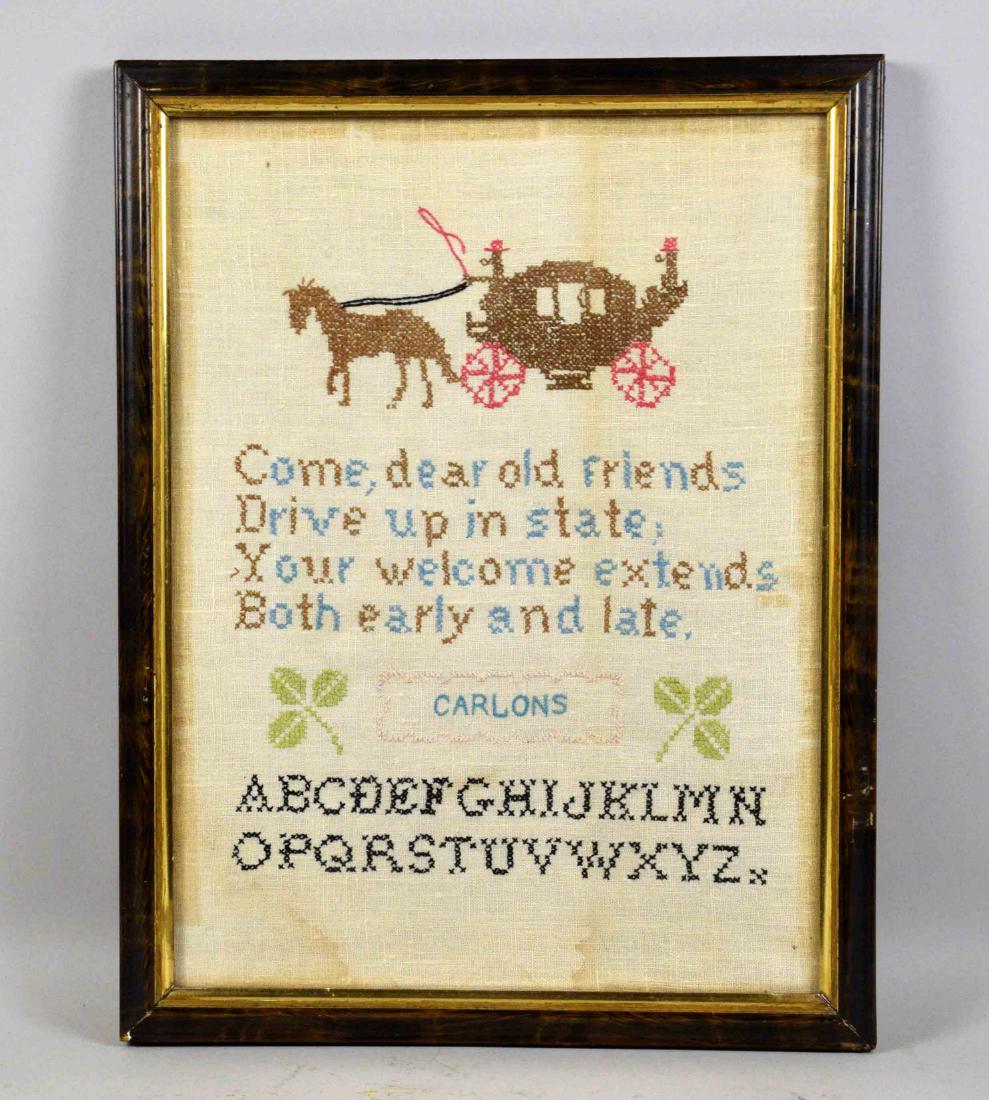 Come, dear old friends
Drive up in state;
Your welcome extends
Both early and late.
CARLONS
ABCDEFGHIJKLMN
OPQRSTUVWXYZ.